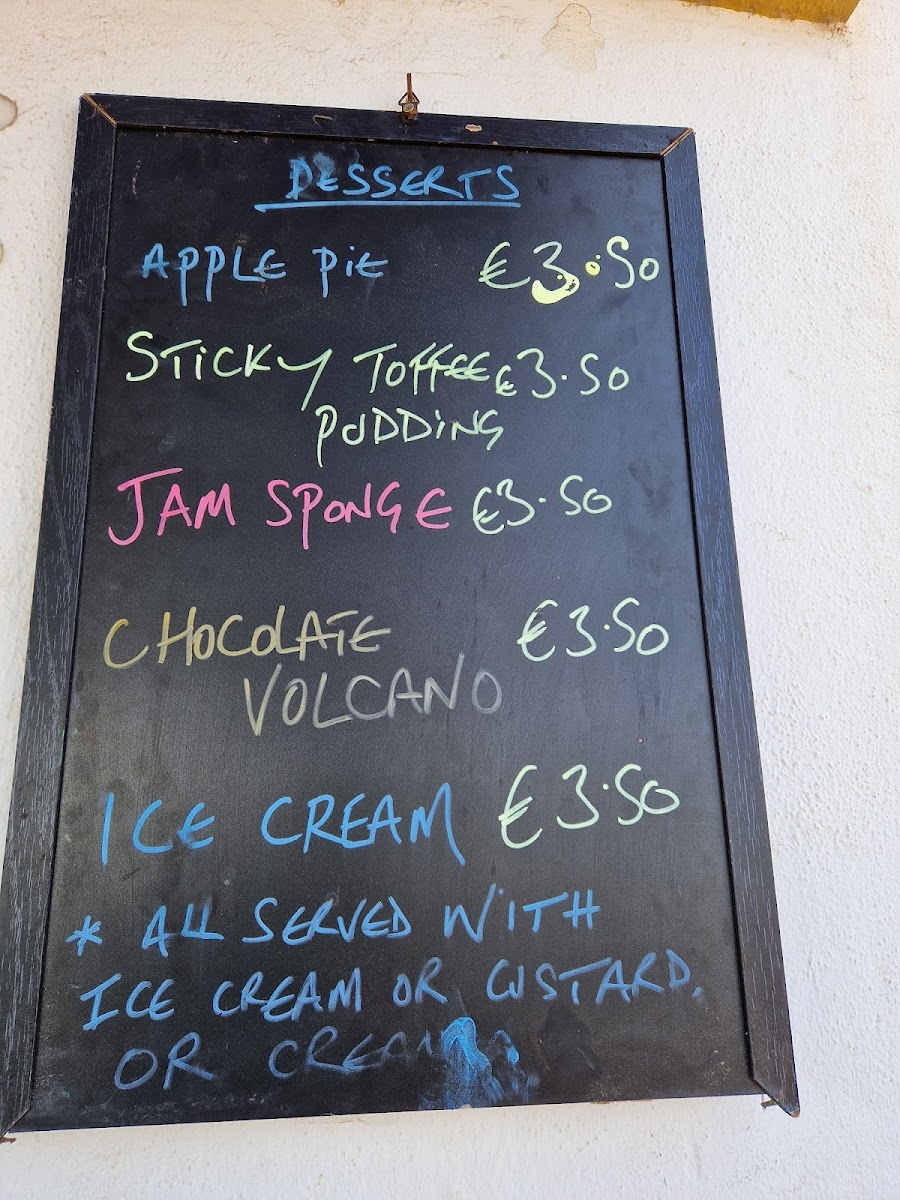 DESSERTS
APPLE PIE €3.50
STICKY TOFFEE €3.50
PUDDING
JAM SPONGE €3.50
CHOCOLATE €3.50
VOLCANO
ICE CREAM €3.50
* ALL SERVED WITH
ICE CREAM OR CUSTARD.
OR CREAM